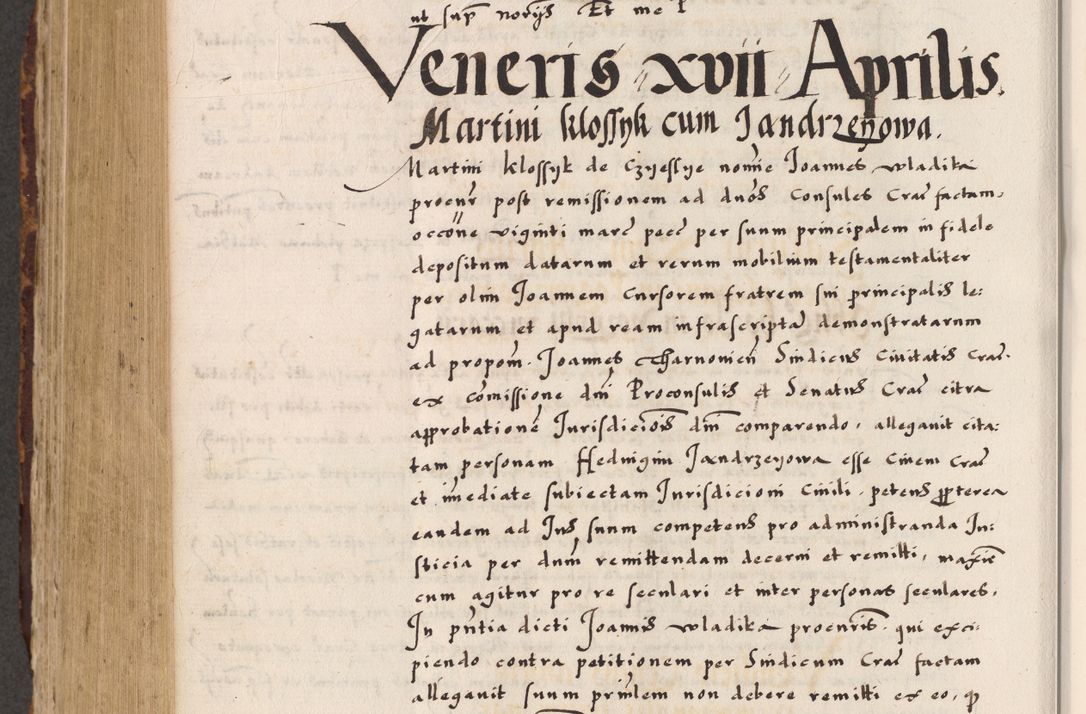 ut sup norijs Et me
Veneris xvii Aprilis
Martini klossyk cum Jandrzeyowa.
Martini klossyk de Czyeslye nomie Joannes wladika
procur post remissionem ad dnos Consules Crac factam,
occone viginti marc pecc per suum principalem in fidele
depositum datarum et rerum mobilium testamentaliter
per olim Joannem Cursorem fratrem sui principalis le:
gatarum et apud ream infrascripta demonstratarum
ad propom. Joannes Charnomien Sindicus Civitatis Crac.
ex Comissione dni Proconsulis et Senatus Crac citra
approbatione Jurisdicois dni comparendo, allegavit cita:
tam personam Hedvigim Jandrzeyowa esse Civem Crac
et imediate subiectam Jurisdicioni Civili, petens propterea
eandem ad Jus suum competens pro administranda Ju:
sticia per dnm remittendam decerni et remitti, maxie
cum agitur pro re seculari et inter personas seculares,
In pntia dicti Joannis wladika procuris. qui exci:
piendo contra petitionem per Sindicum Crac factam
allegavit suum prinlem non debere remitti ex eo, q